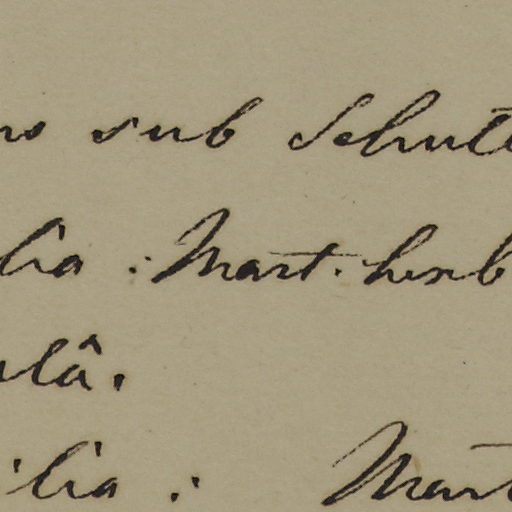 ns sub Schutt
lia : Mart. herb
ulâ.
ilia : Mart